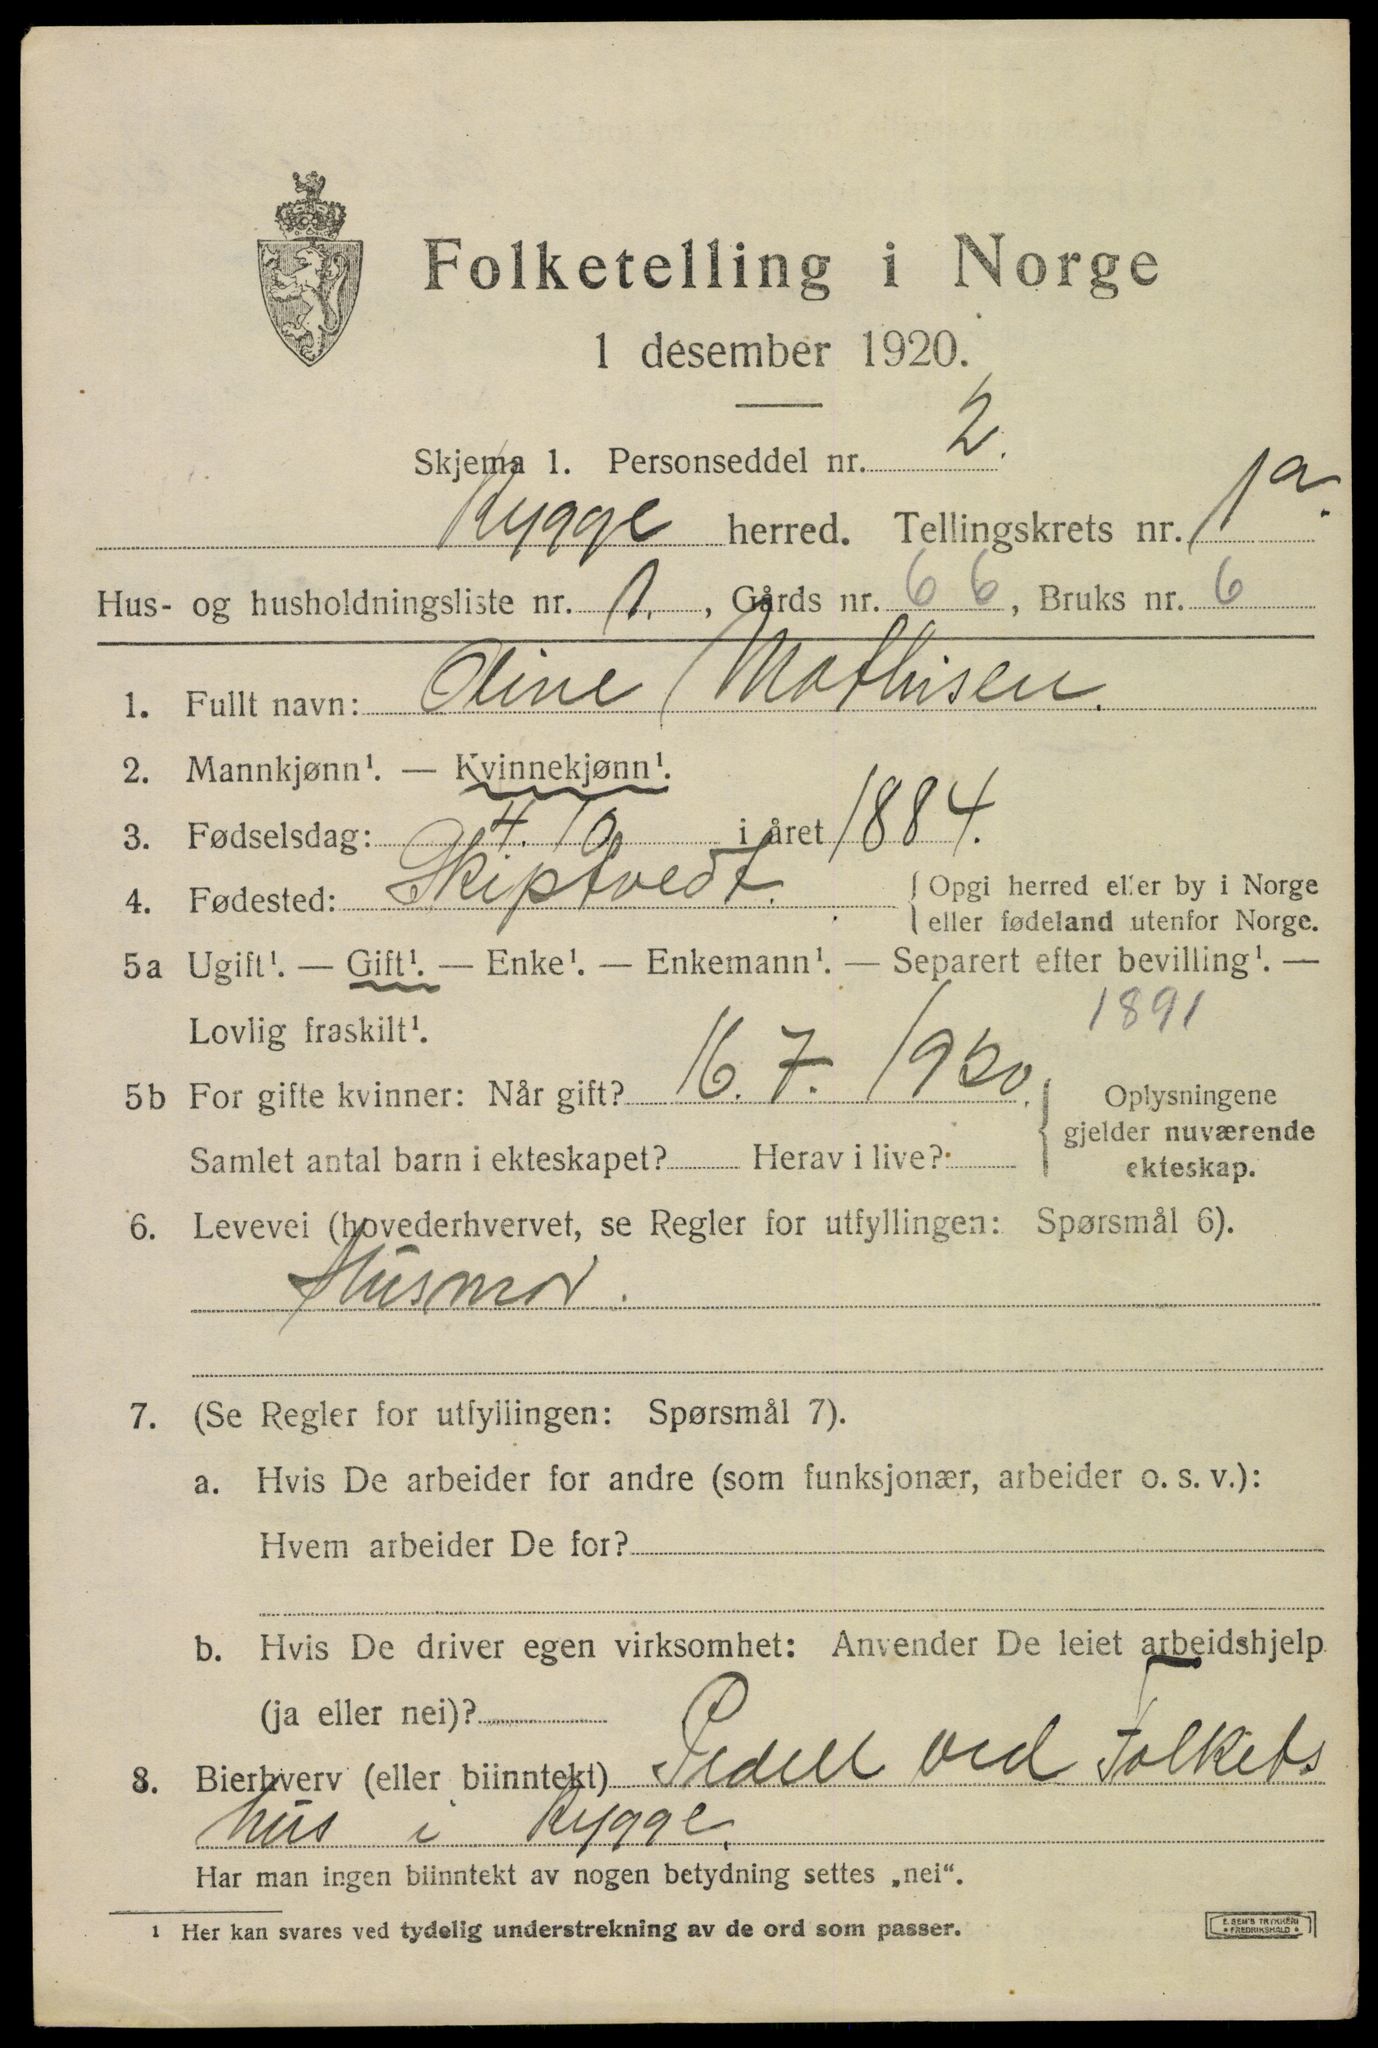 Folketelling i Norge
1 desember 1920.
Skjema 1. Personseddel nr. 2.
Rygge herred. Tellingskrets nr. 1a.
Hus- og husholdningsliste nr. 1., Gårds nr. 66, Bruks nr. 6
1. Fullt navn: Oline Mathisen.
2. Mannkjønn¹. — Kvinnekjønn¹.
3. Fødselsdag: 4. 10 i året 1884.
4. Fødested: Skiptvedt. { Opgi herred eller by i Norge
eller fødeland utenfor Norge.
5a Ugift¹. — Gift¹. — Enke¹. — Enkemann¹. — Separert efter bevilling¹. —
Lovlig fraskilt¹. 1891
5b For gifte kvinner: Når gift? 16. 7. 1920. { Oplysningene
gjelder nuværende
Samlet antal barn i ekteskapet? Herav i live?
ekteskap.
6. Levevei (hovederhvervet, se Regler for utfyllingen: Spørsmål 6).
Husmor.
7. (Se Regler for utfyllingen: Spørsmål 7).
a. Hvis De arbeider for andre (som funksjonær, arbeider o. s. v.):
Hvem arbeider De for?
b. Hvis De driver egen virksomhet: Anvender De leiet arbeidshjelp
(ja eller nei)?
8. Bierhverv (eller biinntekt) Pedell ved Folkets
hus i Rygge.
Har man ingen biinntekt av nogen betydning settes „nei“.
¹ Her kan svares ved tydelig understrekning av de ord som passer.
E. SEM'S TRYKKERI
FREDRIKSHALD